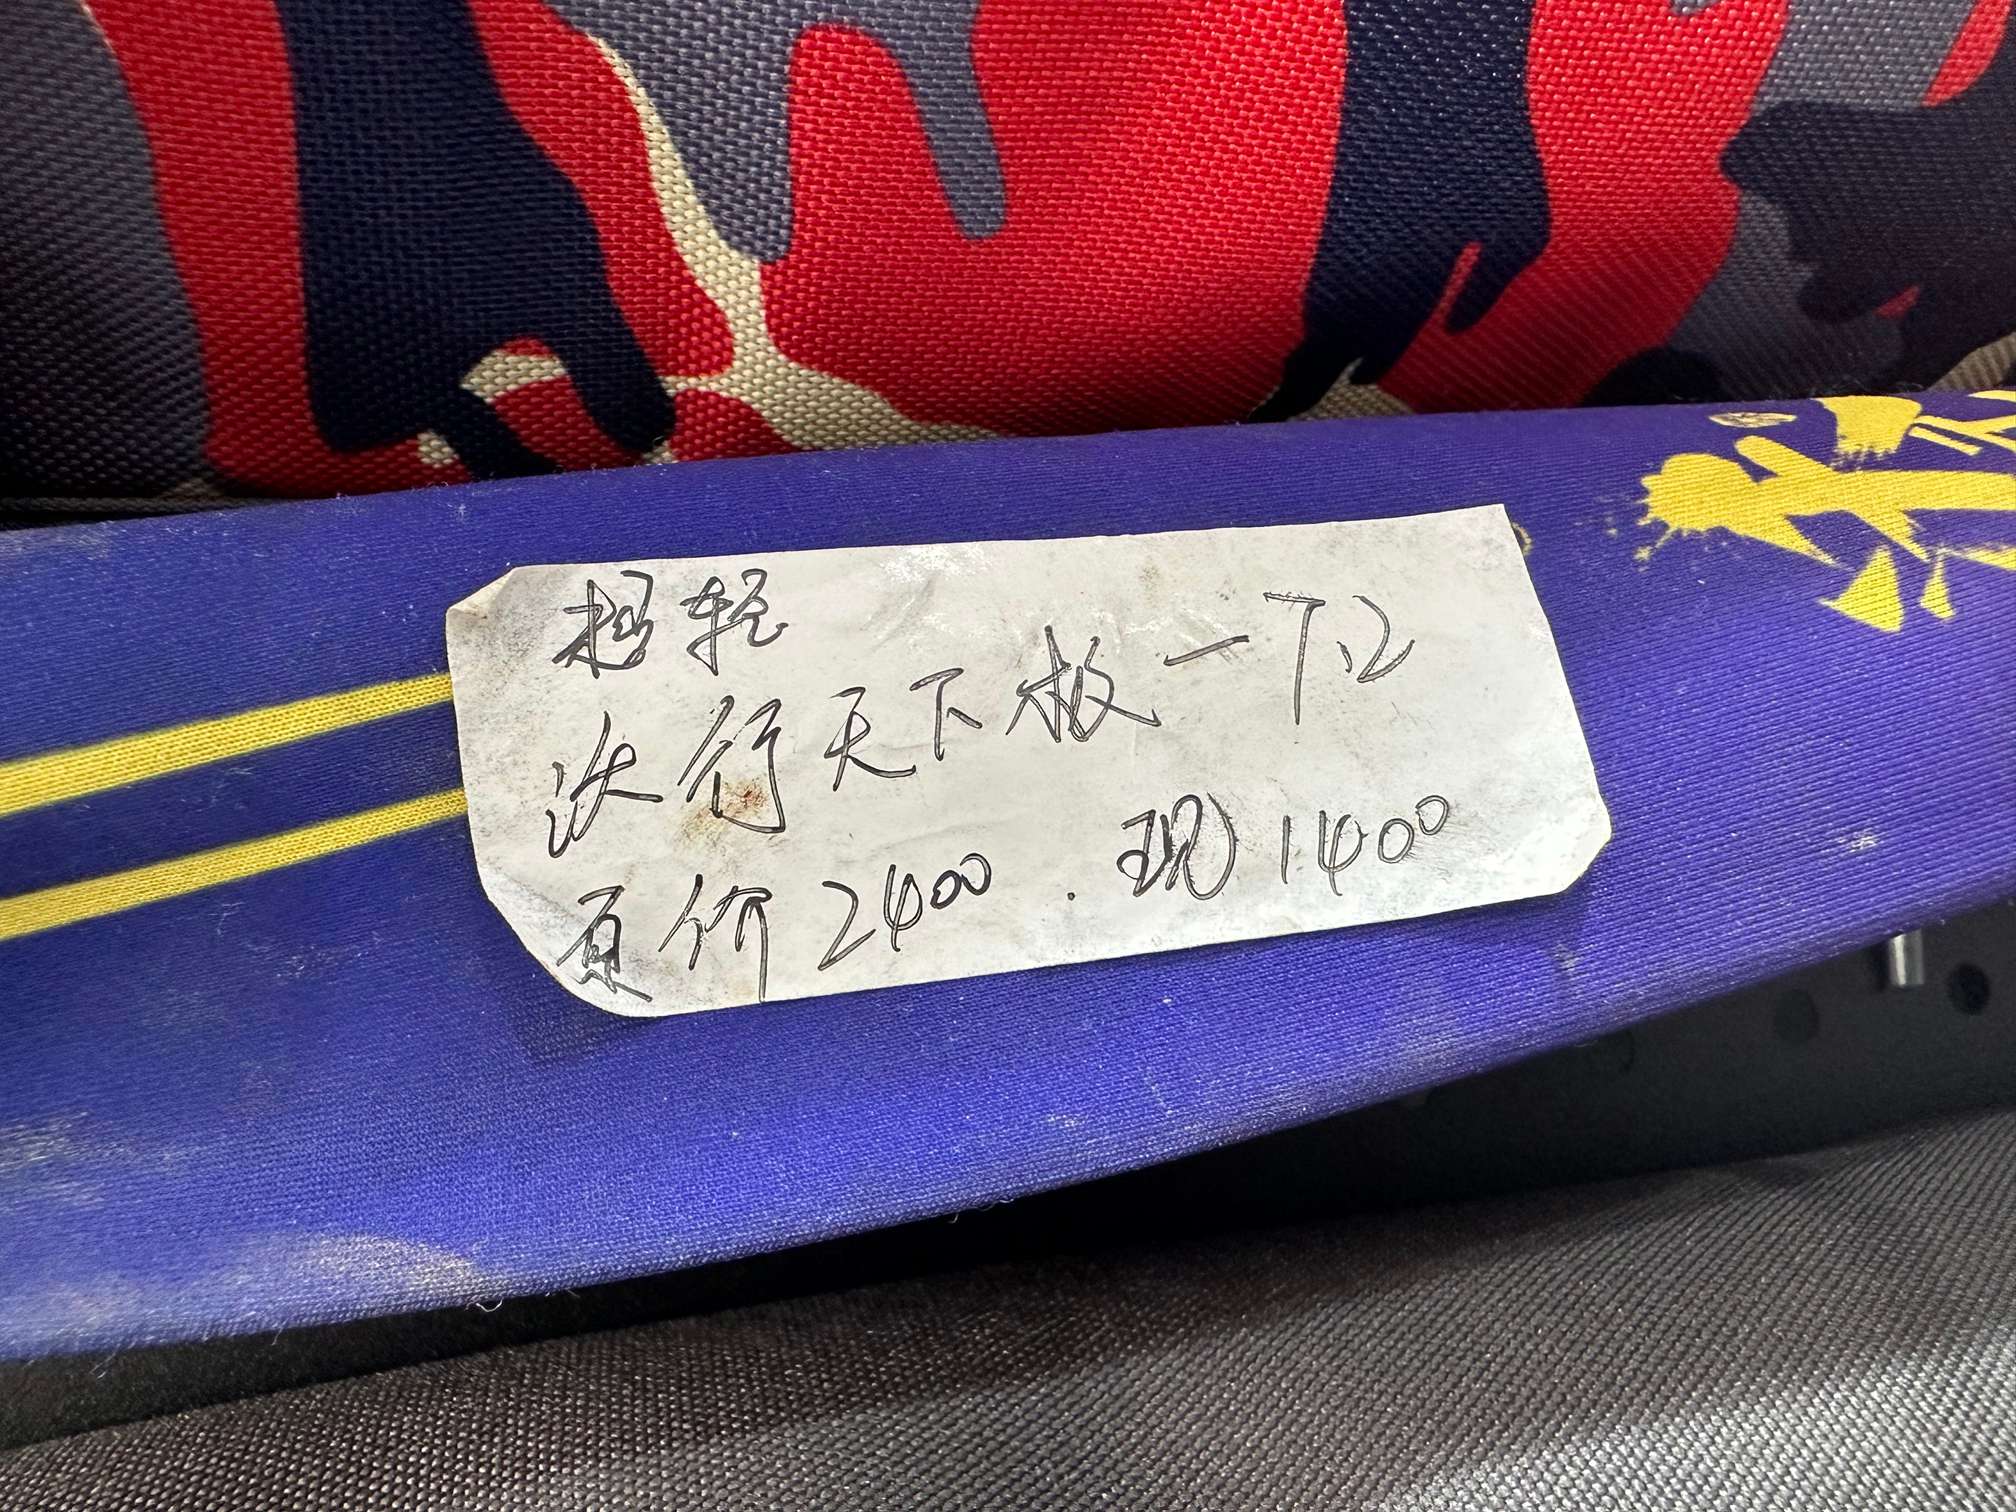 超轻
汏行天下板一7.2
原价2400.现1400